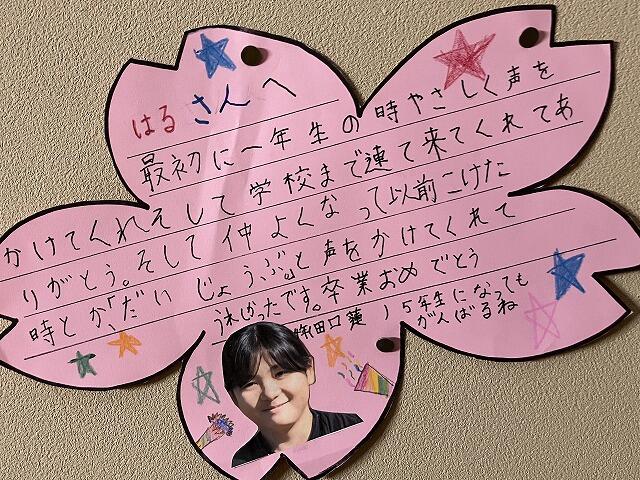 はるさんへ
最初に一年生の時やさしく声を
かけてくれそして学校まで連て来てくれてあ
りがとう。そして仲よくなって以前こけた
時とか、「だいじょうぶ」と声をかけてくれて
うれしかったです。卒業おめでとう
田口蓮
5年生になっても
がんばるね